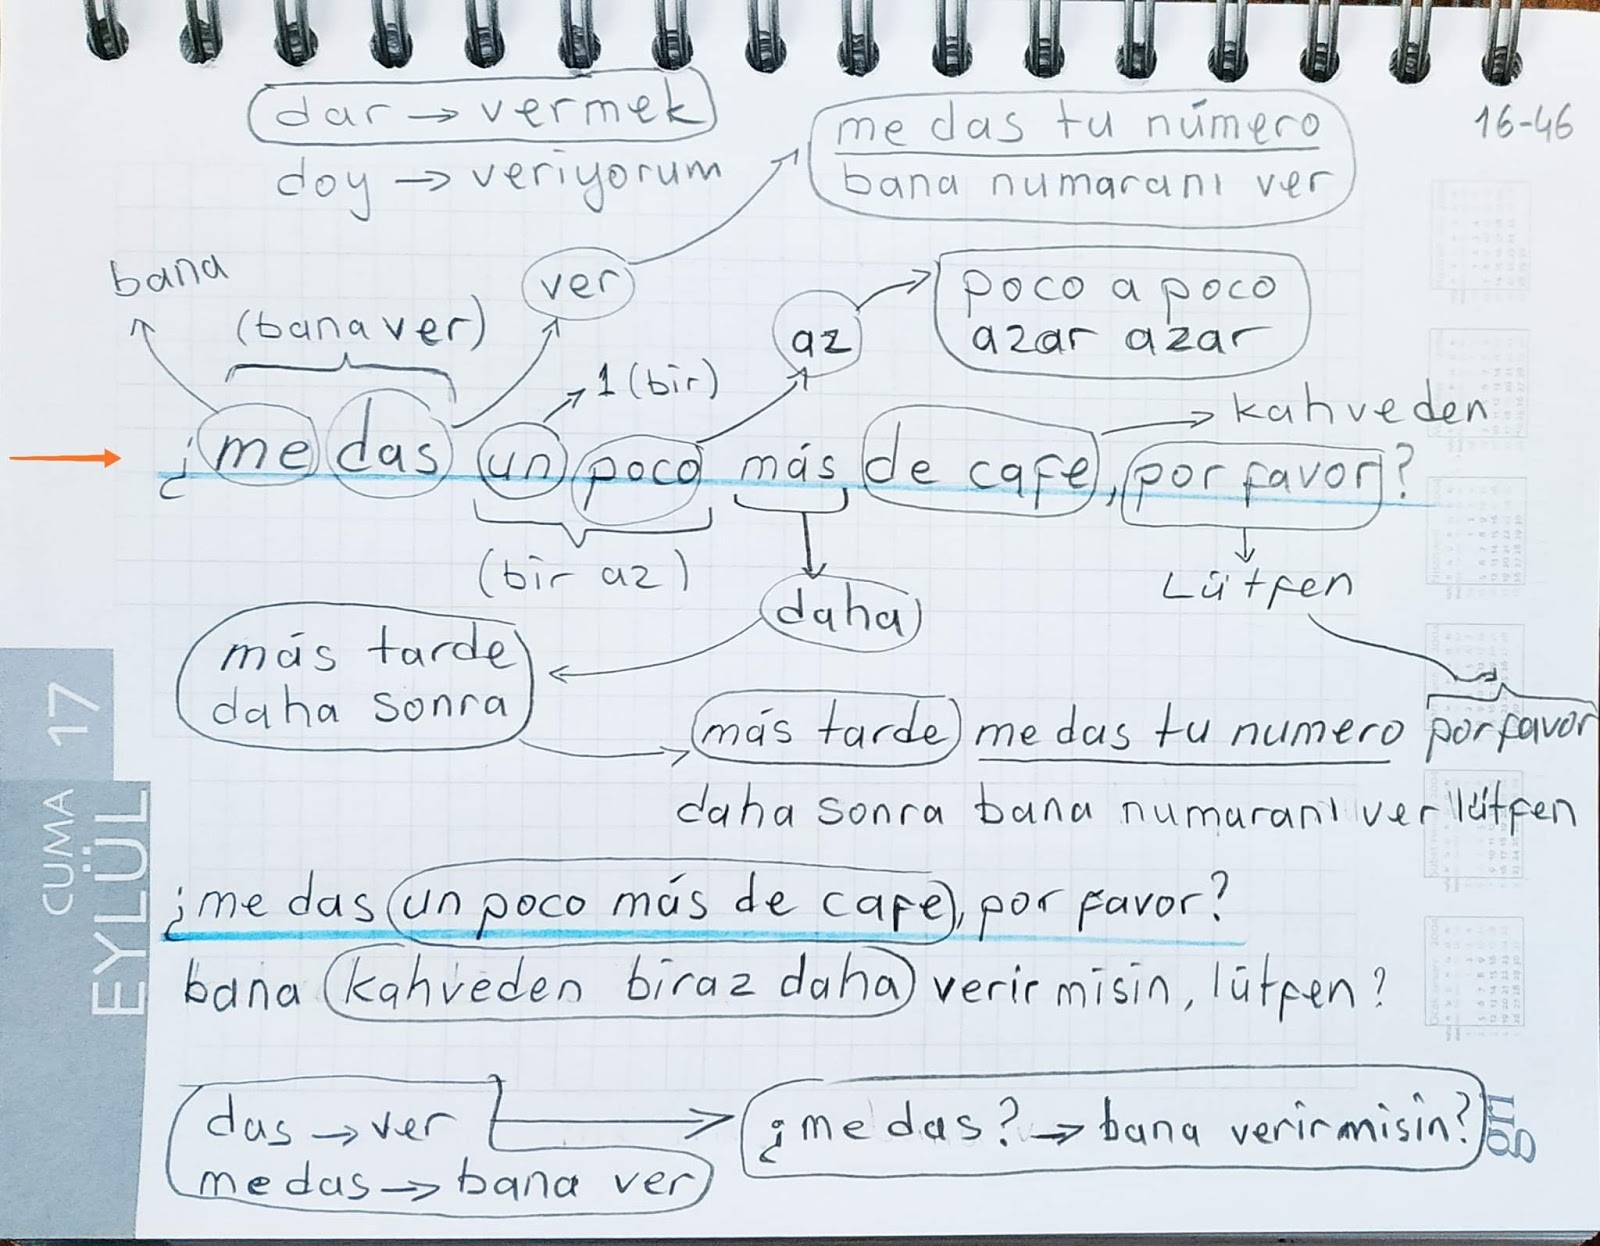 dar → vermek
doy → veriyorum
me das tu número
bana numaranı ver
16-46
bana
(bana ver)
ver
1 (bir)
az
poco a poco
azar azar
kahveden
¿me das un poco más de cafe, por favor?
(bir az)
daha
Lütfen
más tarde
daha sonra
más tarde me das tu numero por favor
daha sonra bana numaranı ver lütfen
CUMA 17
EYLÜL
¿me das un poco más de cafe, por favor?
bana kahveden biraz daha verir misin, lütfen?
das → ver
me das → bana ver
¿me das? → bana verir misin?